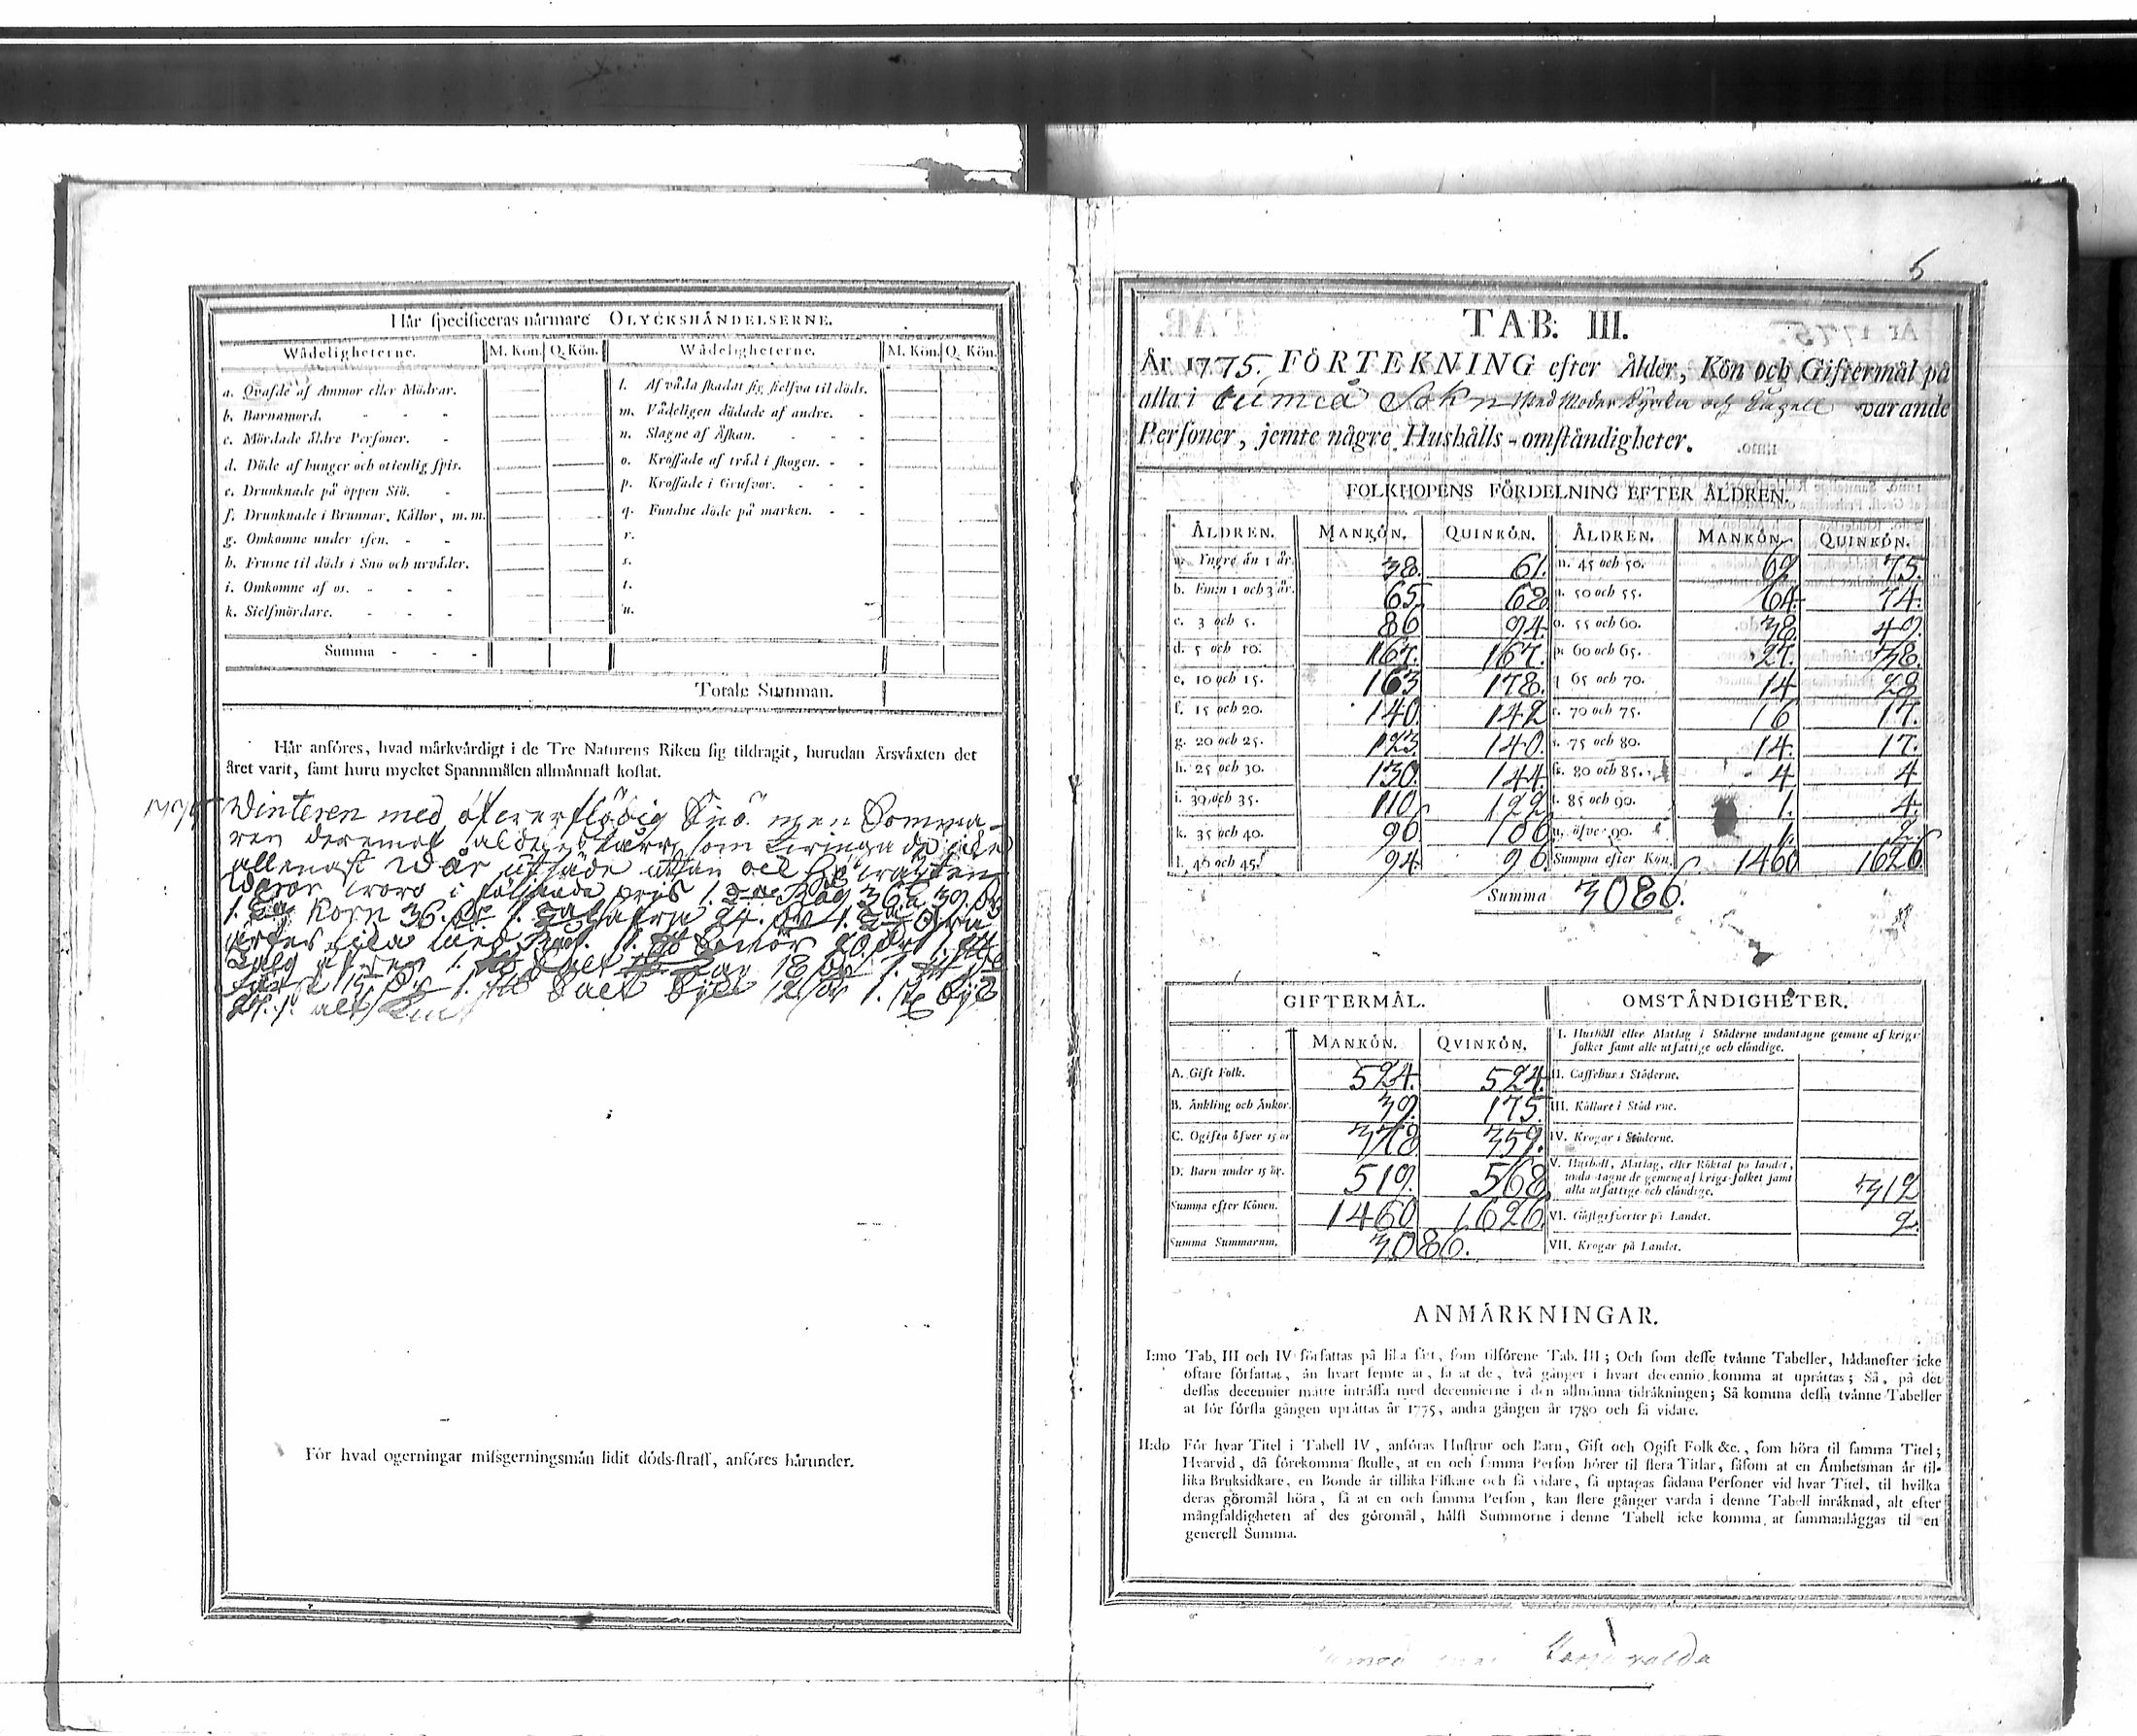 Här specificeras närmare OLYCKSHÄNDELSERNE.
Wådeligheterne. M. Kön. Q. Kön. Wådeligheterne. M. Kön. Q. Kön.
a. Qvafde af Ammor eller Mödrar.
b. Barnamord.
c. Mördade äldre Personer.
d. Döde af hunger och otienlig spis.
e. Drunknade på öppen Siö.
f. Drunknade i Brunnar, Källor, m. m.
g. Omkomne under isen.
h. Frusne til döds i Snö och urväder.
i. Omkomne af os.
k. Sielfmördare.
l. Af våda skadat sig sielfva til döds.
m. Vådeligen dödade af andre.
n. Slagne af Åskan.
o. Krossade af träd i skogen.
p. Krossade i Grufvor.
q. Fundne döde på marken.
r.
s.
t.
u.
Summa
Totale Summan.
Här anföres, hvad märkvärdigt i de Tre Naturens Riken sig tildragit, hurudan Årsväxten det
året varit, samt huru mycket Spannmålen allmännast kostat.
Winteren med öfwerflödig Snö men Somma-
ren deremot
allenast
i pris 1.
1. Korn 36. 1. 24. 1.
1. Smör 20. 1.
1. Salt 18
1. 12 1.
För hvad ogerningar missgerningsmän lidit döds-straff, anföres härunder.
5
TAB: III.
År 1775. FÖRTEKNING efter Ålder, Kön och Giftermål på
alla i Sokn med Moder Kyrka och varande
Personer, jemte någre Hushålls-omständigheter.
FOLKHOPENS FÖRDELNING EFTER ÅLDREN.
ÅLDREN. MANKÖN. QUINKÖN. ÅLDREN. MANKÖN. QUINKÖN.
a. Yngre än 1 år. 38. 61. m. 45 och 50. 75.
b. Emin 1 och 3 år. 65. 68 n. 50 och 55. 64. 74.
c. 3 och 5. 86 94. o. 55 och 60. 38. 49.
d. 5 och 10. 167. 167. p. 60 och 65. 27. 38.
e. 10 och 15. 163 178. q. 65 och 70. 14 28
f. 15 och 20. 140. 142 r. 70 och 75. 16 17.
g. 20 och 25. 123 140. s. 75 och 80. 14. 17.
h. 25 och 30. 130. 144. 80 och 85. 4 4
i. 30 och 35. 110 122. t. 85 och 90. 1. 4.
k. 35 och 40. 90 106 u. öfver 90.
l. 40 och 45. 94. 96 Summa efter Kön. 1460 1626
Summa 3086.
GIFTERMÅL. OMSTÄNDIGHETER.
MANKÖN. QVINKÖN.
A. Gift Folk. 524. 524.
B. Änkling och Änkor. 39. 175.
C. Ogifta öfwer 15 år 378 359.
D. Barn under 15 år. 519. 568
Summa efter Könen. 1460 1626
Summa Summarum. 3086.
I. Hushåll eller Matlag i Städerne undantagne gemene af krigs-
folket samt alle utfattige och eländige.
II. Caffehus i Städerne.
III. Källare i Städerne.
IV. Krogar i Städerne.
V. Hushåll, Matlag, eller Röktal på landet,
undantagne de gemene af krigs-folket samt
alla utfattige och eländige. 312
VI. Gästgifverier på Landet. 2.
VII. Krogar på Landet.
ANMÄRKNINGAR.
I:mo Tab. III och IV författas på lika sätt, som tilförene Tab. III; Och som desse tvänne Tabeller, hädanefter icke
oftare författas, än hvart femte år, så at de, två gånger i hvart decennio komma at uprättas; Så, på det
dessas decennier måtte inträffa med decennierne i den allmänna tidräkningen; Så komma dessa tvänne Tabeller
at för första gången uprättas år 1775, andra gången år 1780 och så vidare.
II:do För hvar Titel i Tabell IV, anföras Hustrur och Barn, Gift och Ogift Folk &c., som höra til samma Titel;
Hvarvid, då förekomma skulle, at en och samma Person hörer til flera Titlar, såsom at en Ämbetsman är til-
lika Bruksidkare, en Bonde är tillika Fiskare och så vidare, så uptagas sådana Personer vid hvar Titel, til hvilka
deras göromål höra, så at en och samma Person, kan flere gånger varda i denne Tabell inräknad, alt efter
mångfaldigheten af des göromål, hälst Summorne i denne Tabell icke komma at sammanläggas til en
generell Summa.